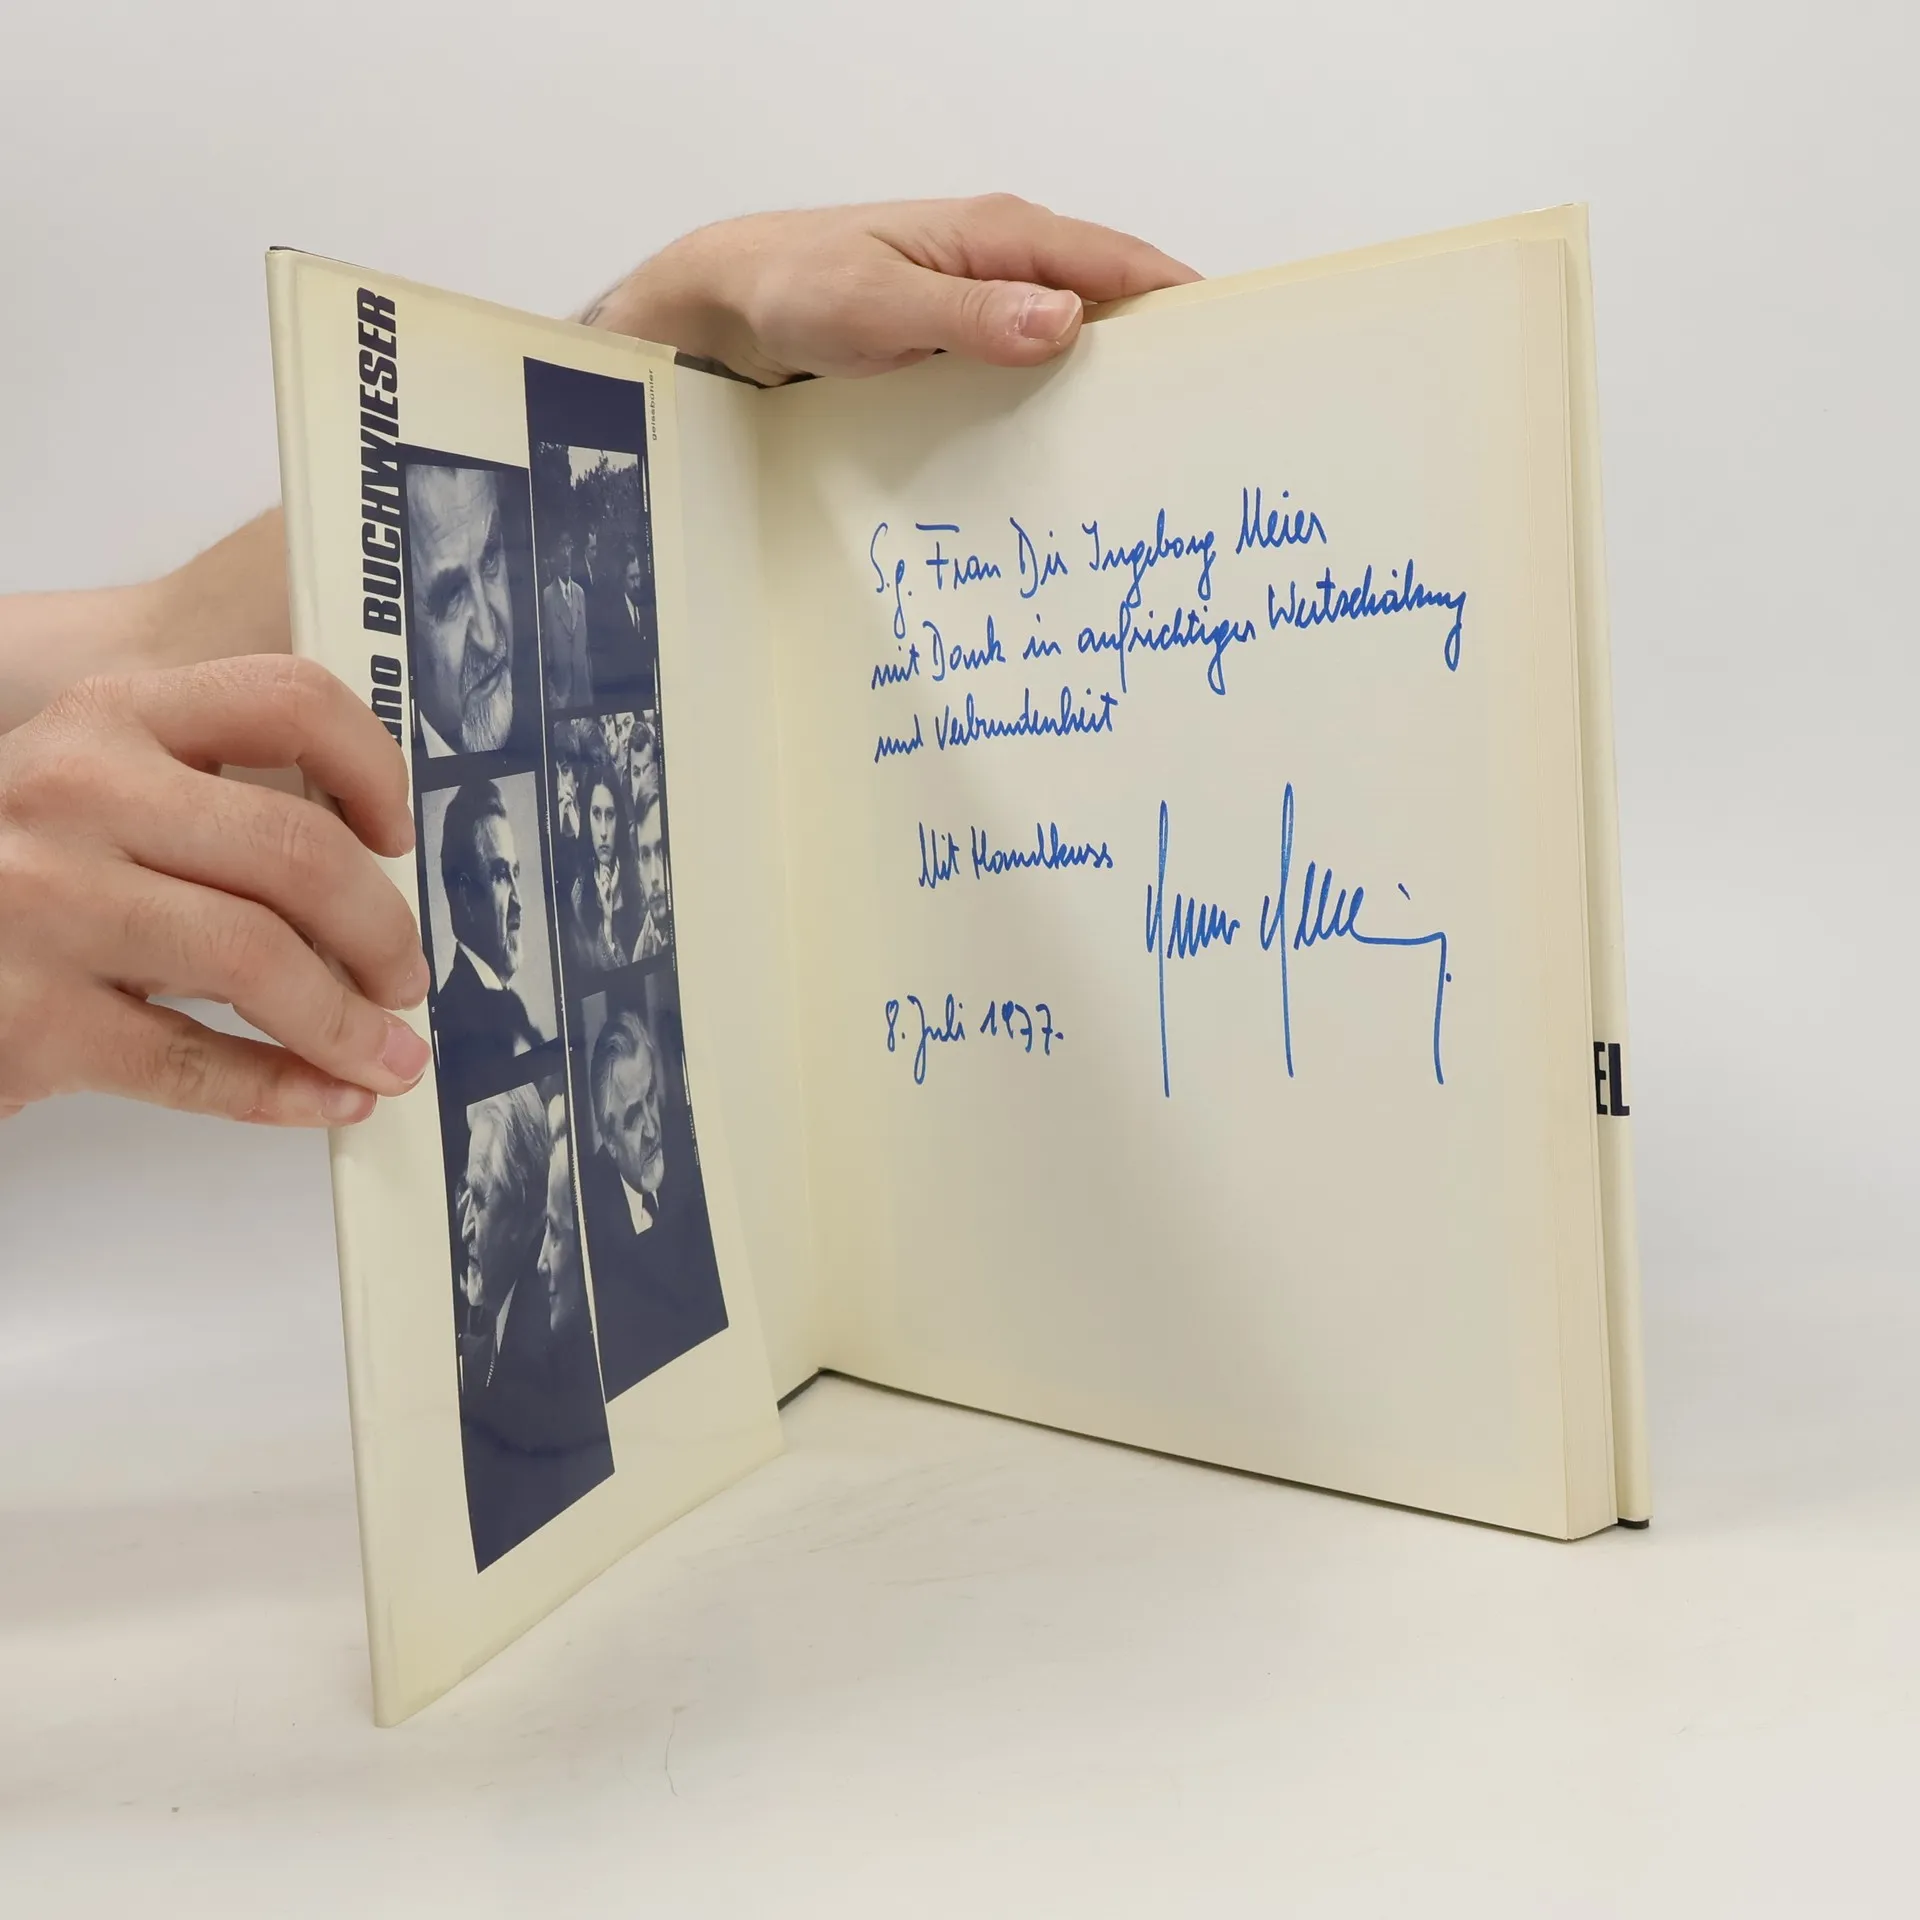 BUCHWIESER
geissbühler
S.g. Frau Dir Ingeborg Meier
mit Dank in aufrichtiger Wertschätzung
und Verbundenheit
Mit Handkuss
8. Juli 1977.
EL